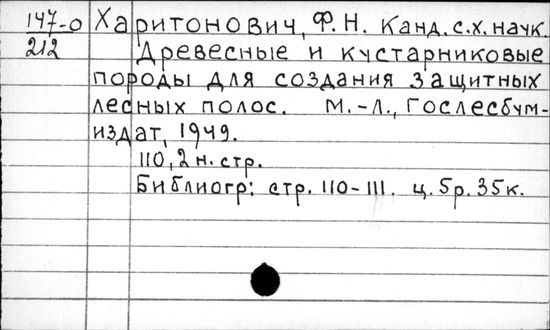 147-о Харитонович, Ф. Н. Канд. с.х. наук.
212 Древесные и кустарниковые
породы для создания защитных
лесных полос. М.-Л., Гослесбум-
издат, 1949.
110, 2 н. стр.
Библиогр: стр. 110-111. ц. 5р. 35к.